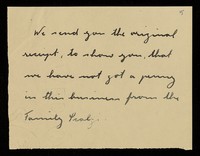 We send you the original
receipt, to show you, that
we have not got a penny
in this business from the
Family